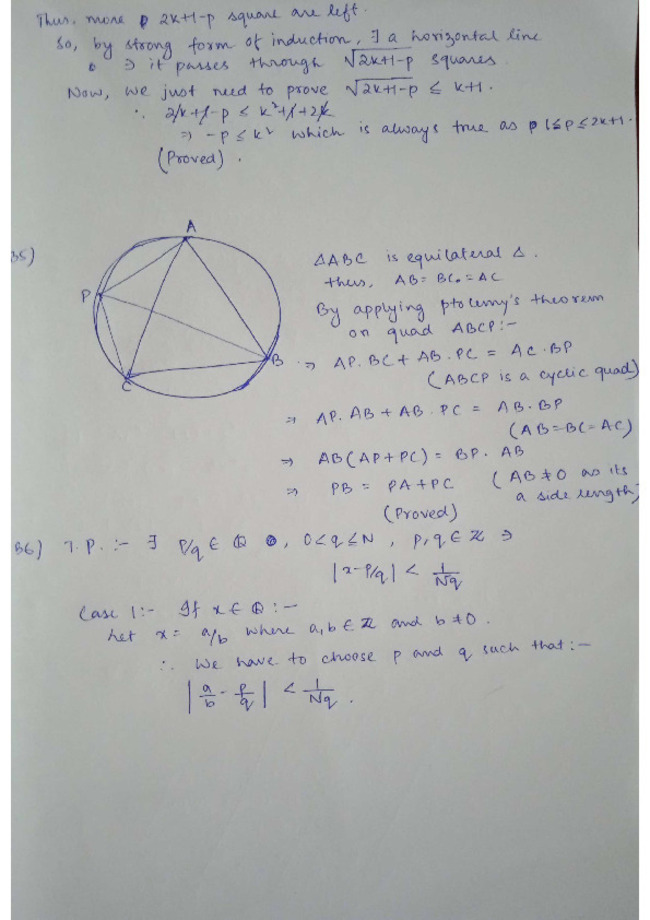 Thus, more p 2k+1-p square are left.
So, by strong form of induction, ∃ a horizontal line
∋ it passes through √2k+1-p squares.
Now, we just need to prove √2k+1-p ≤ k+1.
∴ 2k+1-p ≤ k²+1+2k
⇒ -p ≤ k² which is always true as p 1≤p≤2k+1.
(Proved).
A
P
B
C
B5)
△ABC is equilateral △.
thus, AB = BC = AC
By applying ptolemy's theorem
on quad ABCP:-
⇒ AP.BC + AB.PC = AC.BP
(ABCP is a cyclic quad)
⇒ AP.AB + AB.PC = AB.BP
(AB=BC=AC)
⇒ AB(AP+PC) = BP.AB
⇒ PB = PA+PC (AB≠0 as its
a side length)
(Proved)
B6) T.P. :- ∃ p/q ∈ ℚ, 0<q≤N, p,q ∈ ℤ ∋
|x-p/q| < 1/Nq
Case 1:- If x ∈ ℚ :-
Let x = a/b where a,b ∈ ℤ and b≠0.
∴ We have to choose p and q such that:-
|a/b - p/q| < 1/Nq.